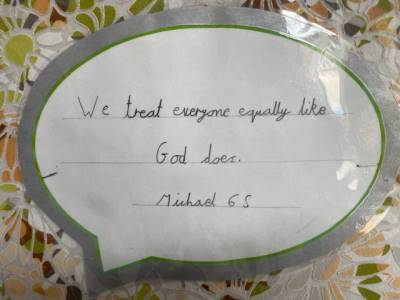 We treat everyone equally like
God does.
Michael 6S